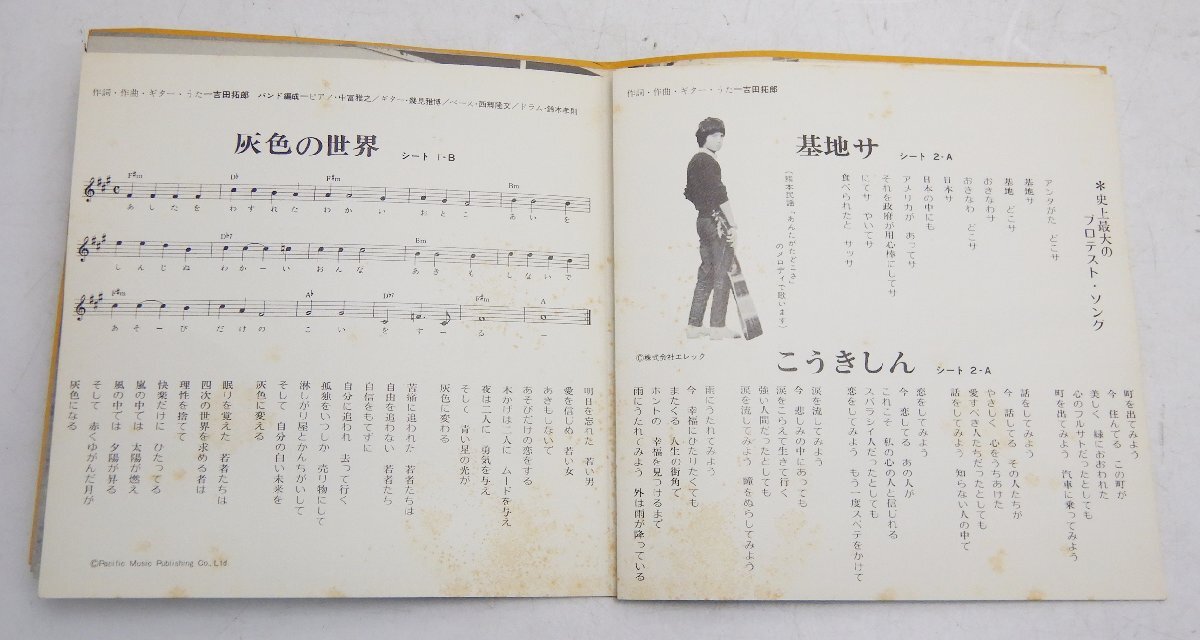 作詞・作曲・ギター・うた―吉田拓郎 バンド編成―ピアノ・中富雅之/ギター・幾見雅博/ベース・西郷隆文/ドラム・鈴木孝則
灰色の世界 シート 1・B
F♯m D♭ F♯m Bm
あしたを わすれた わかい おとこ あいを
D♭7 Bm
しんじぬ わかーい おんな あきも しないで
F♯m A♭ D♭7 F♯m A
あそーび だけの こい をする ー
明日を忘れた 若い男
愛を信じぬ 若い女
あきもしないで
あそびだけの恋をする
木かげは二人に ムードを与え
夜は二人に 勇気を与え
そして 青い星の光が
灰色に変わる
苦痛に追われた 若者たちは
自由を追わない 若者たち
自信をもてずに
自分に追われ 去って行く
孤独をいつしか 売り物にして
淋しがり屋とかんちがいして
そして 自分の白い未来を
灰色に変える
眠りを覚えた 若者たちは
四次の世界を求める者は
理性を捨てて
快楽だけに ひたってる
嵐の中では 太陽が燃え
風の中では 夕陽が昇る
そして 赤くゆがんだ月が
灰色になる
©Pacific Music Publishing Co., Ltd.
作詞・作曲・ギター・うた―吉田拓郎
基地サ シート 2・A
*史上最大の
プロテスト・ソング
アンタがた どこサ
基地サ
基地 どこサ
おきなわサ
おきなわ どこサ
日本サ
日本の中にも
アメリカが あってサ
それを政府が用心棒にしてサ
にてサ やいてサ
食べられたと サッサ
(熊本民謡「あんたがたどこさ」
のメロディで歌います)
©株式会社エレック
こうきしん シート 2・A
町を出てみよう
今 住んでる この町が
美しく 緑におおわれた
心のフルサトだったとしても
町を出てみよう 汽車に乗ってみよう
話をしてみよう
今 話してる その人たちが
やさしく 心をうちあけた
愛すべき人たちだったとしても
話をしてみよう 知らない人の中で
恋をしてみよう
今 恋してる あの人が
これこそ 私の心の人と信じれる
スバラシイ人だったとしても
恋をしてみよう もう一度スベテをかけて
涙を流してみよう
今 悲しみの中にあっても
涙をこらえて生きて行く
強い人間だったとしても
涙を流してみよう 瞳をぬらしてみよう
雨にうたれてみよう
今 幸福にひたりたくても
またくる 人生の街角で
ホントの 幸福を見つけるまで
雨にうたれてみよう 外は雨が降っている